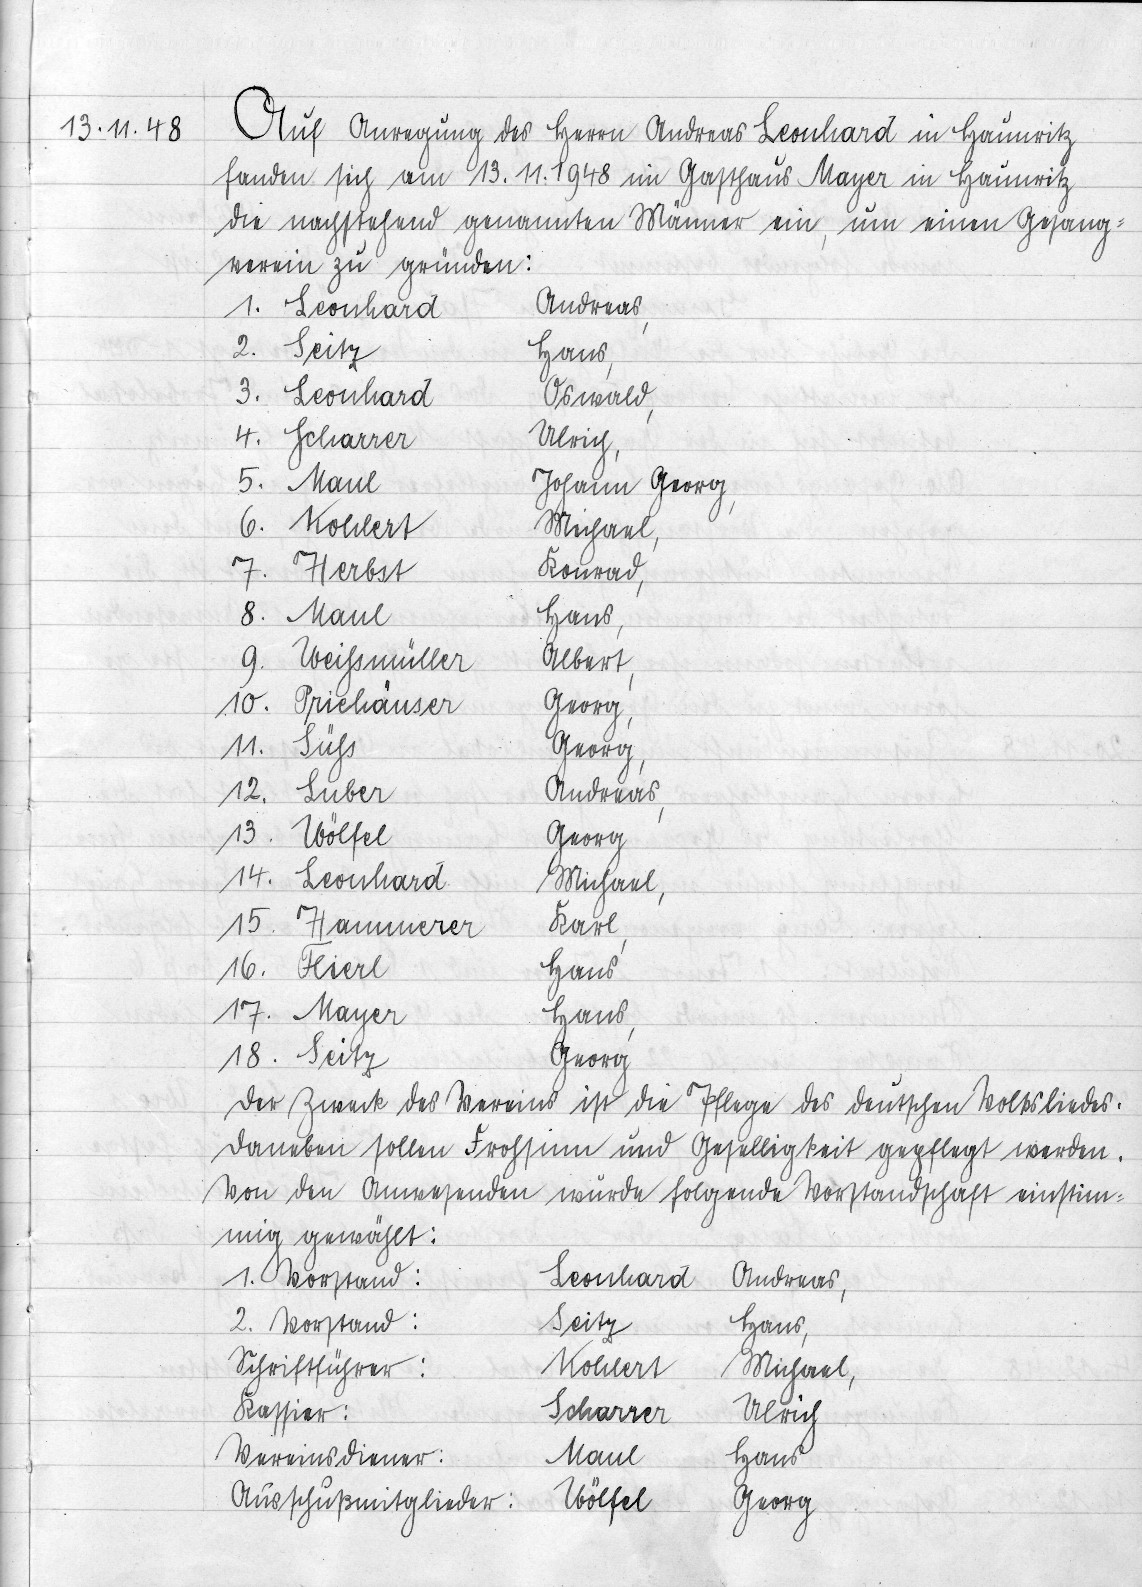 13.11.48 Auf Anregung des Herrn Andreas Leonhard in Haunritz
fanden sich am 13.11.1948 im Gasthaus Mayer in Haunritz
die nachstehend genannten Männer ein, um einen Gesang=
verein zu gründen:
1. Leonhard Andreas,
2. Seitz Hans,
3. Leonhard Oswald,
4. Scharrer Ulrich,
5. Maul Johann Georg,
6. Kohlert Michael,
7. Herbst Konrad,
8. Maul Hans,
9. Weihsmüller Albert,
10. Priehäuser Georg,
11. Sühs Georg,
12. Luber Andreas,
13. Wölfel Georg
14. Leonhard Michael,
15. Hammerer Karl,
16. Flierl Hans
17. Mayer Hans,
18. Seitz Georg
Der Zweck des Vereins ist die Pflege des deutschen Volksliedes.
Daneben sollen Frohsinn und Geselligkeit gepflegt werden.
Von den Anwesenden wurde folgende Vorstandschaft einstim=
mig gewählt:
1. Vorstand: Leonhard Andreas,
2. Vorstand: Seitz Hans,
Schriftführer: Kohlert Michael,
Kassier: Scharrer Ulrich
Vereinsdiener: Maul Hans
Ausschußmitglieder: Wölfel Georg